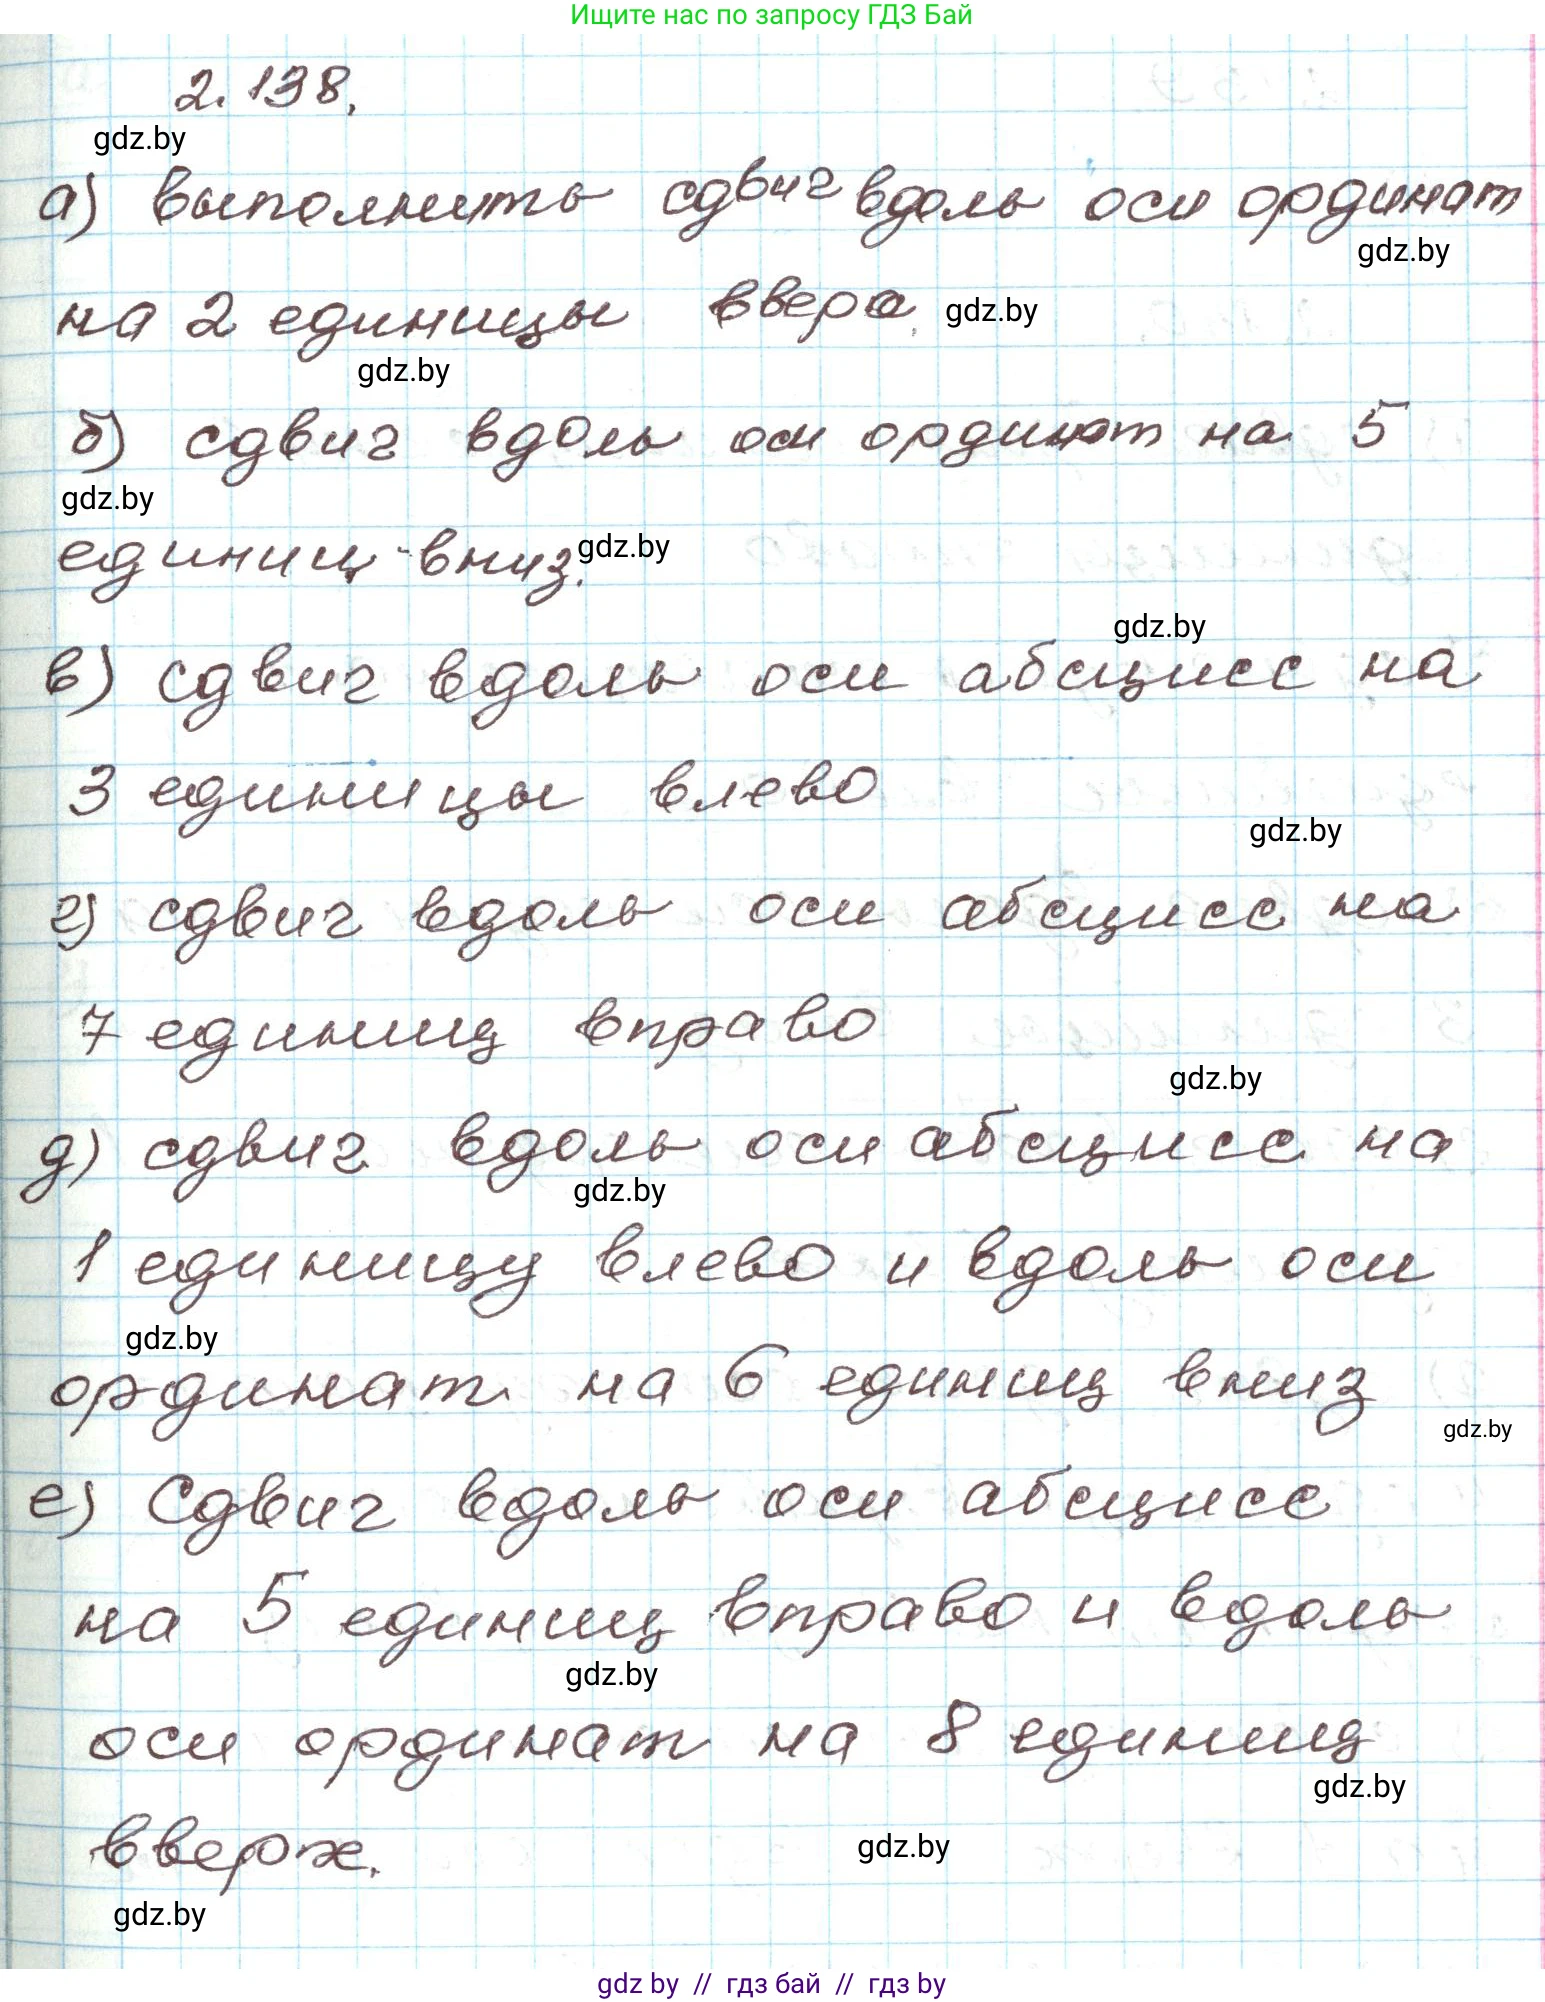 Ищите нас по запросу ГДЗ Бай
2.138.
gdz.by
а) выполнить сдвиг вдоль оси ординат
gdz.by
на 2 единицы вверх gdz.by
gdz.by
б) сдвиг вдоль оси ординат на 5
gdz.by
единиц вниз. gdz.by
gdz.by
в) сдвиг вдоль оси абсцисс на
3 единицы влево
gdz.by
г) сдвиг вдоль оси абсцисс на
7 единиц вправо
gdz.by
д) сдвиг вдоль оси абсцисс на
gdz.by
1 единицу влево и вдоль оси
gdz.by
ординат на 6 единиц вниз
gdz.by
е) Сдвиг вдоль оси абсцисс
на 5 единиц вправо и вдоль
gdz.by
оси ординат на 8 единиц
gdz.by
вверх.
gdz.by
gdz.by
gdz by // гдз бай // гдз by